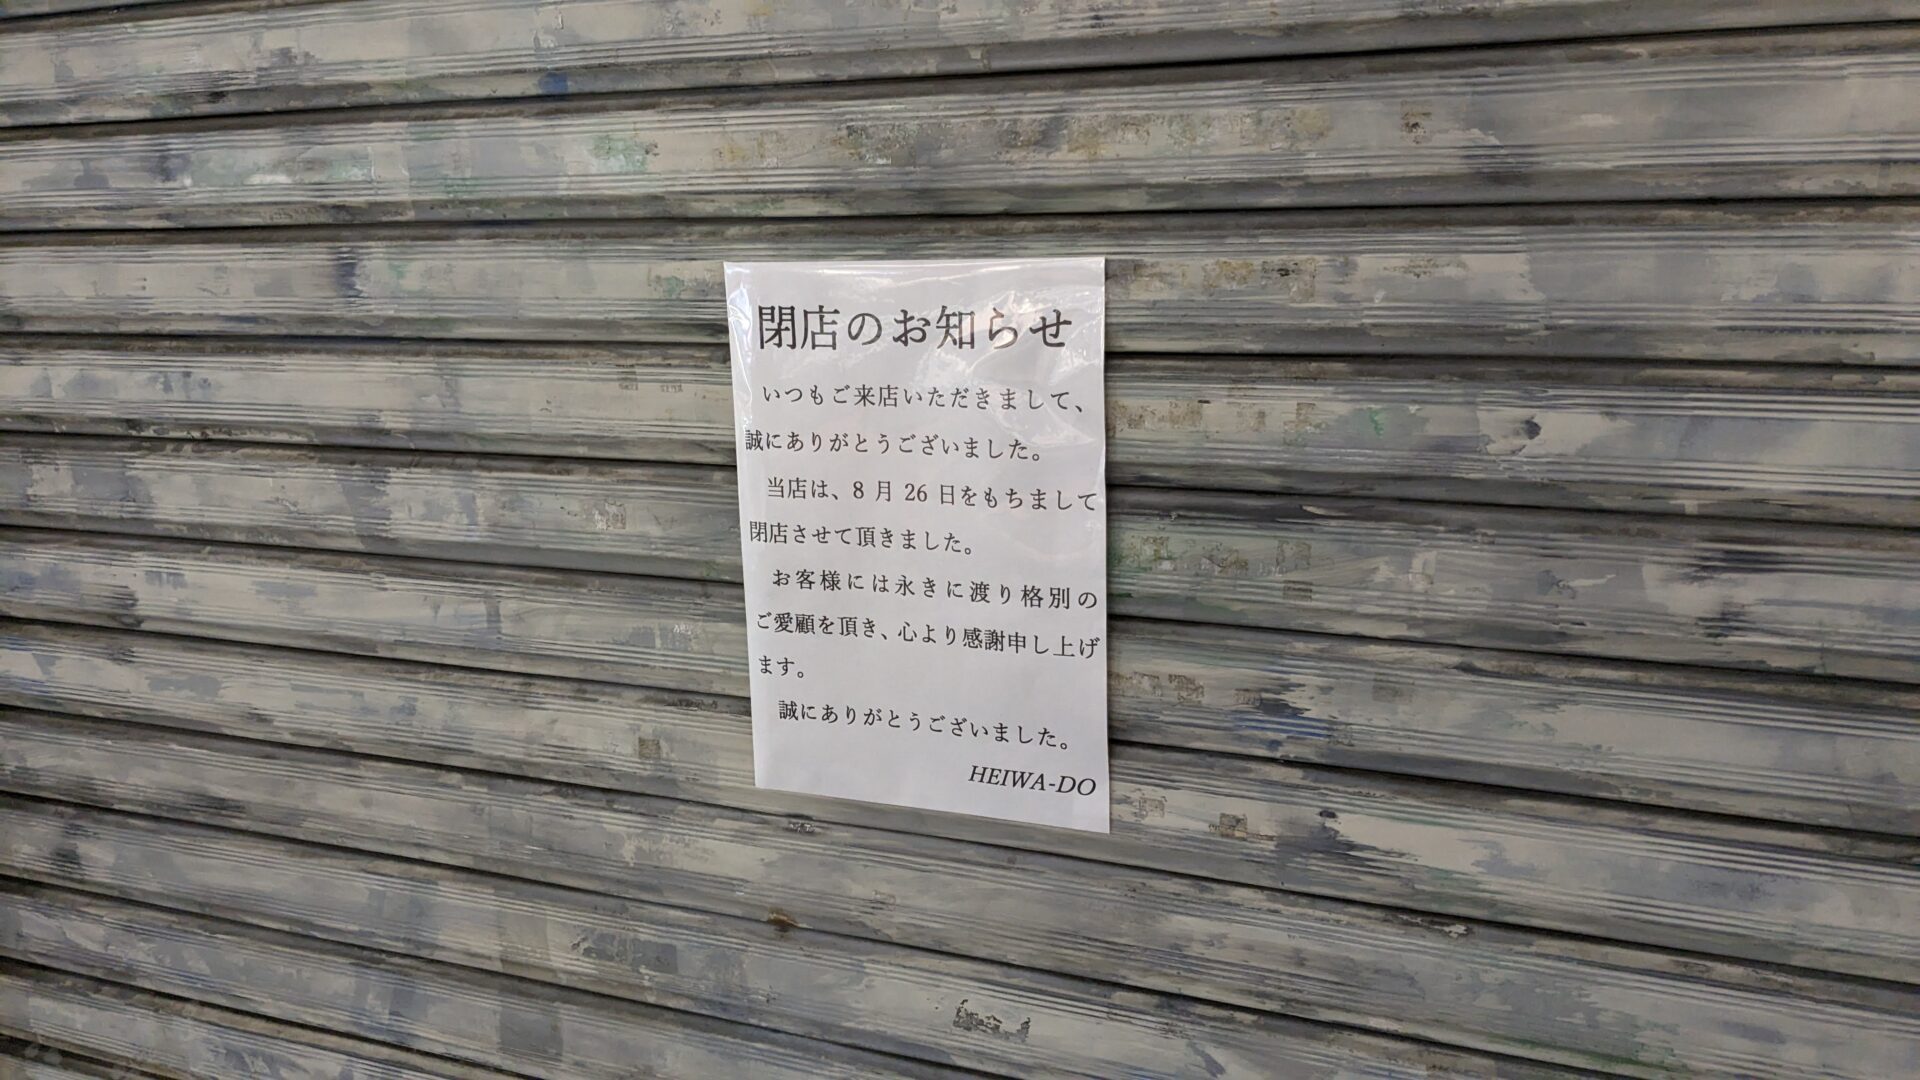 閉店のお知らせ
いつもご来店いただきまして、
誠にありがとうございました。
当店は、8 月 26 日をもちまして
閉店させて頂きました。
お客様には永きに渡り格別の
ご愛顧を頂き、心より感謝申し上げ
ます。
誠にありがとうございました。
HEIWA-DO